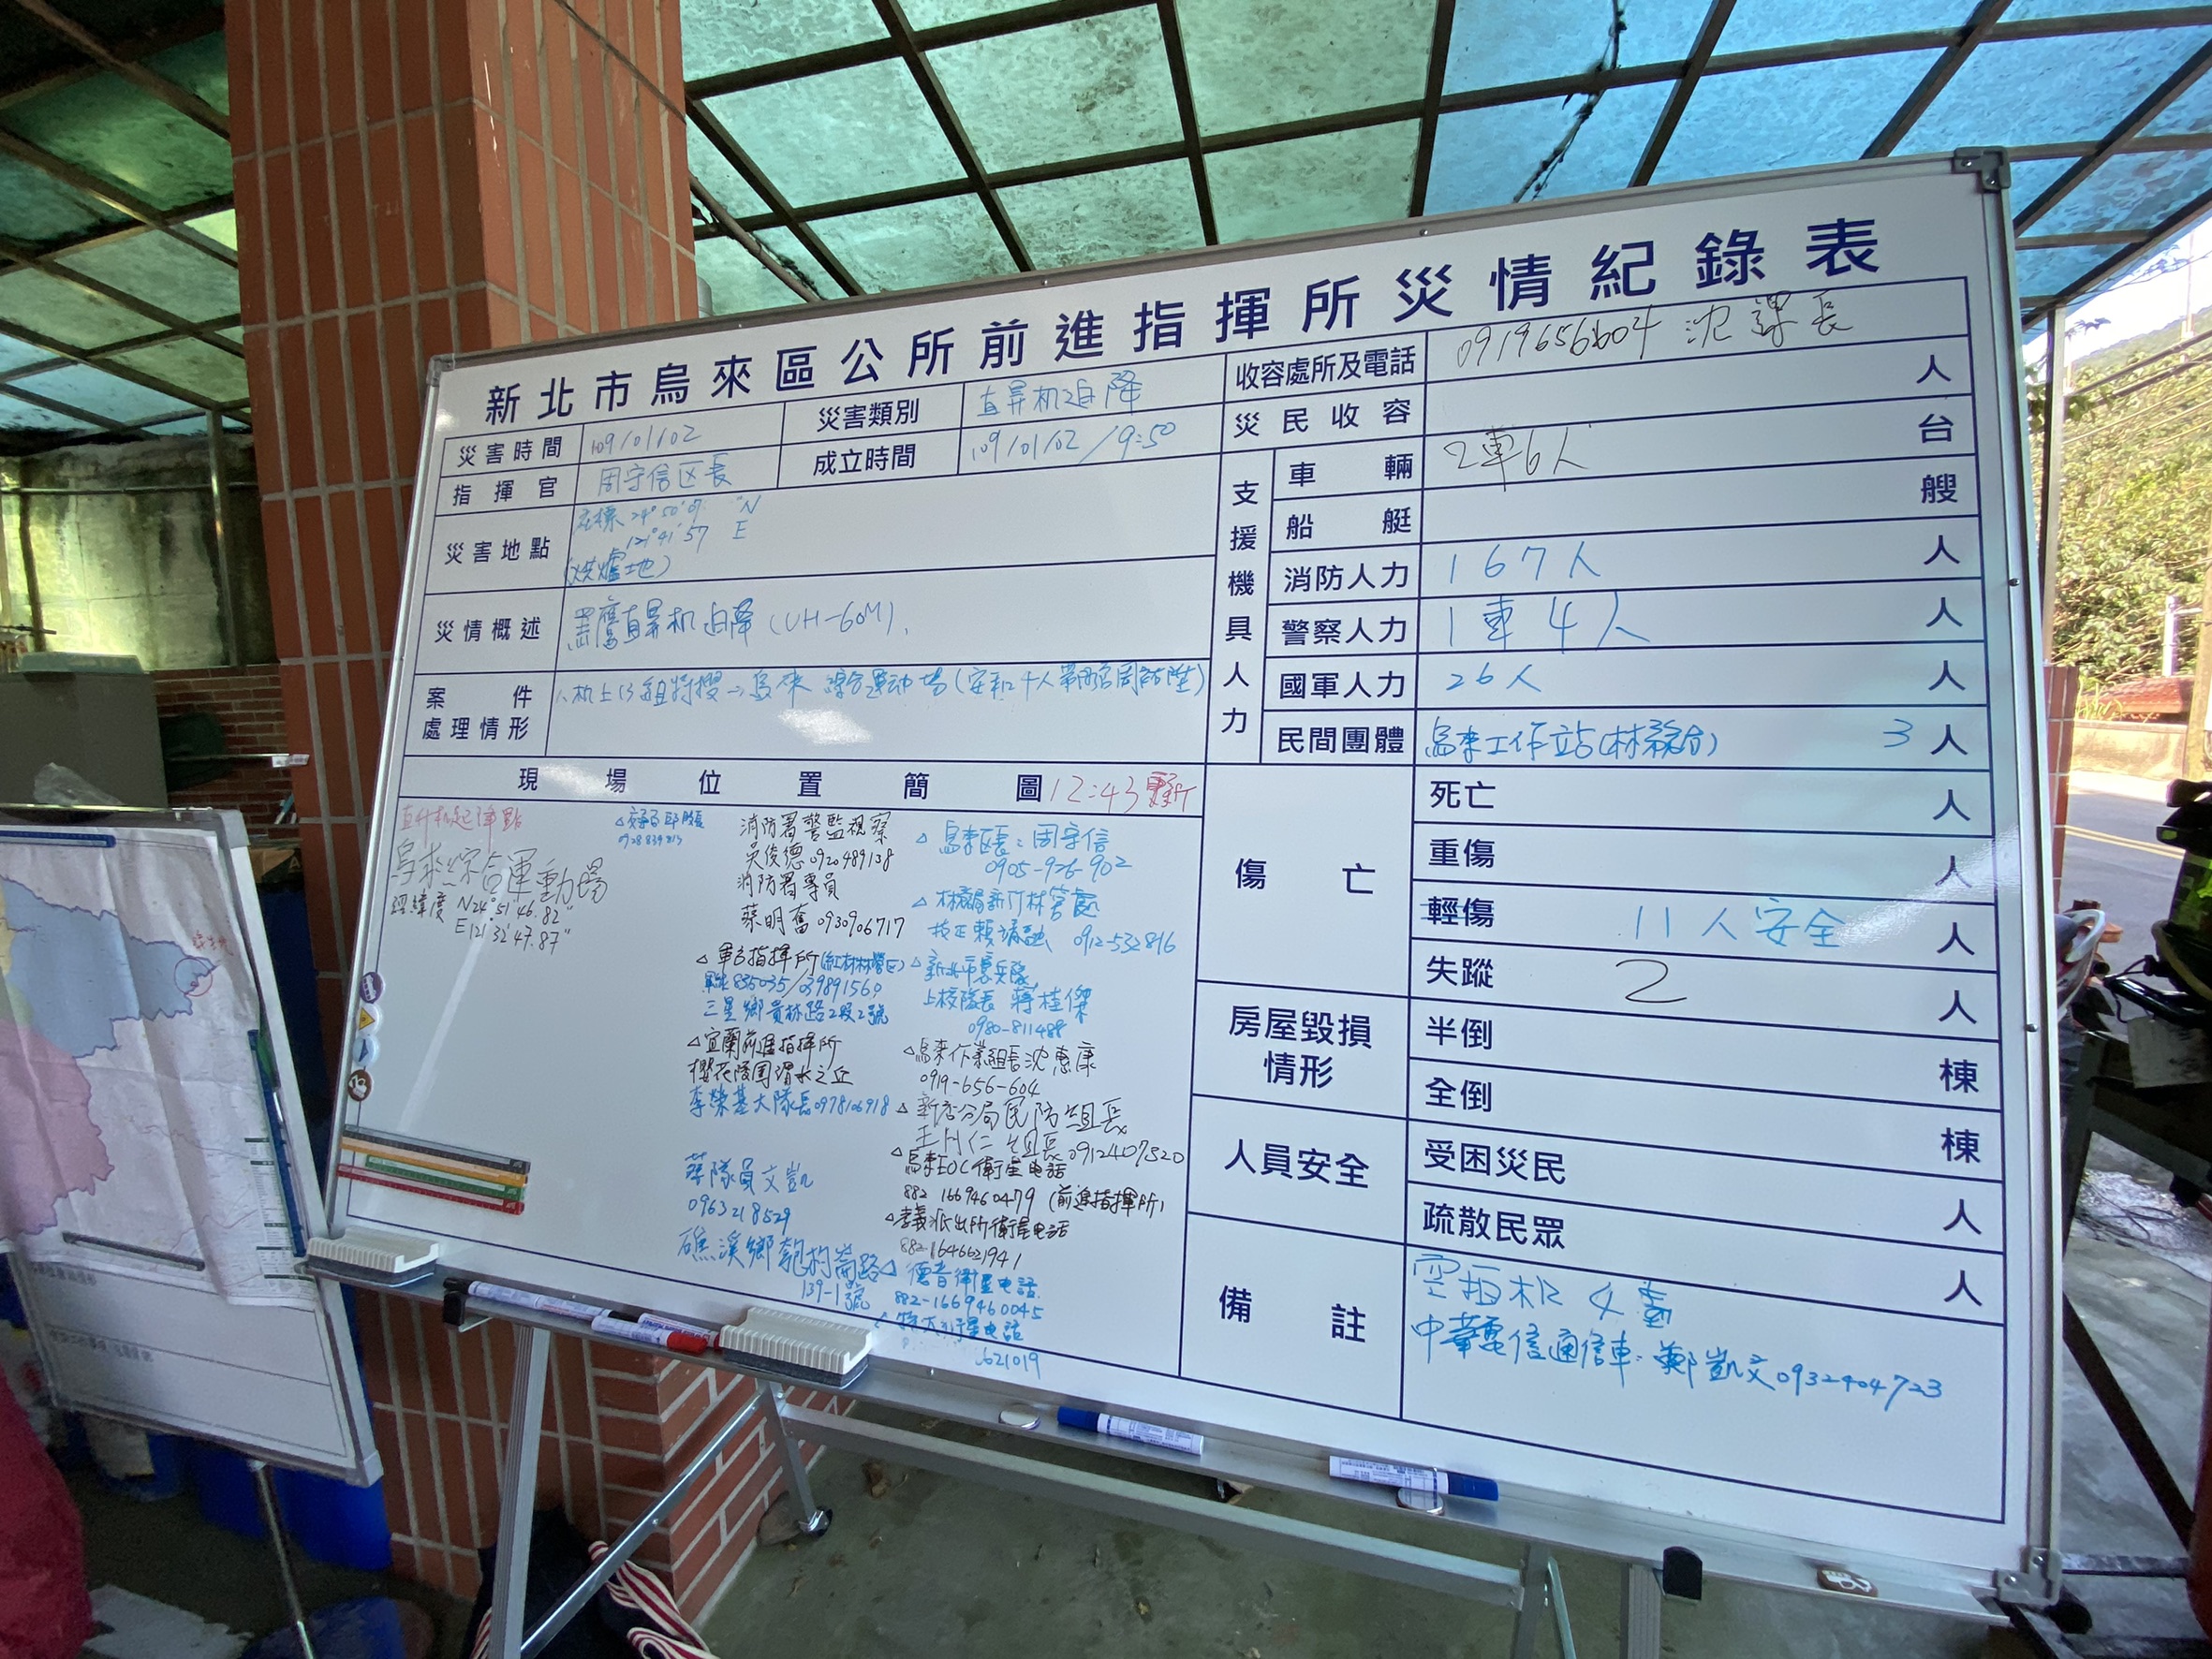 新北市烏來區公所前進指揮所災情紀錄表
災害時間 109/01/02 災害類別 直昇机迫降
指揮官 周守信区長 成立時間 109/01/02/9:50
災害地點 座標 24°50'07" N
121°41'57 E
(烘爐地)
災情概述 黑鷹直昇机迫降(UH-60M).
案件處理情形 机上13 組 搜 烏來 綜合運動場
收容處所及電話 0919656604 沈課長
災民收容 人
支援機具人力
車輛 2車6人 台
船艇 艘
消防人力 167人 人
警察人力 1車4人 人
國軍人力 26人 人
民間團體 烏來工作站 3人
傷亡
死亡 人
重傷 人
輕傷 11人安全 人
失蹤 2 人
房屋毀損情形
半倒 棟
全倒 棟
人員安全
受困災民 人
疏散民眾 人
備註 空拍机4
中華電信通信車:鄭凱文0932404723
現場位置簡圖 12:43更新
直升机起降點
烏來綜合運動場
經緯度 N24°51'46.82"
E121°32'47.87"
消防署警監視察
吳俊德0920489138
消防署專員
蔡明奮0930906717
△軍方指揮所
三星鄉員林路2段2號
△宜蘭前進指揮所
櫻花陵園渭水之丘
李榮基大隊長0978106918
隊員文凱
0963218529
礁溪鄉匏杓崙路
139-1號
△烏來区長:周守信
0905-926-902
△林務局新竹林管處
技正賴 0912-532816
△新北市憲兵隊
上校隊長 蔣桂傑
0980-811488
△烏來作業組長沈惠康
0919-656-604
△新店分局民防組長
組長0912407320
△烏來EOC衛星電話
882 1669460479 (前進指揮所)
△孝義派出所衛星電話
882-1646621941
△德音衛星電話
882-1669460045
衛星電話
621019